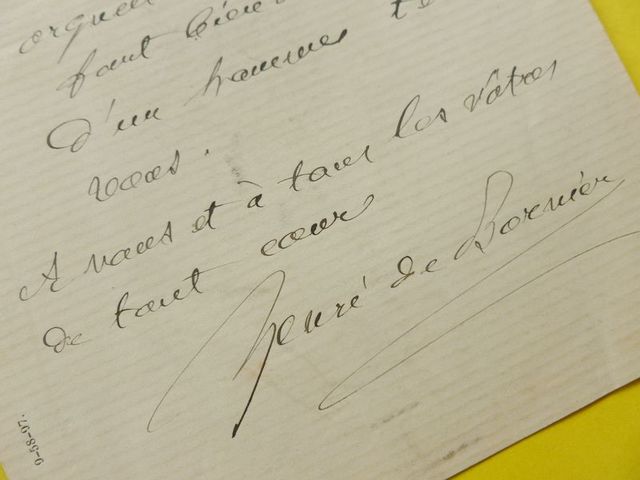 orgueil
faut bien
d'un homme te
vous.
A vous et à tous les vôtres
de tout cœur
Henri de Bornier
9-58-97.